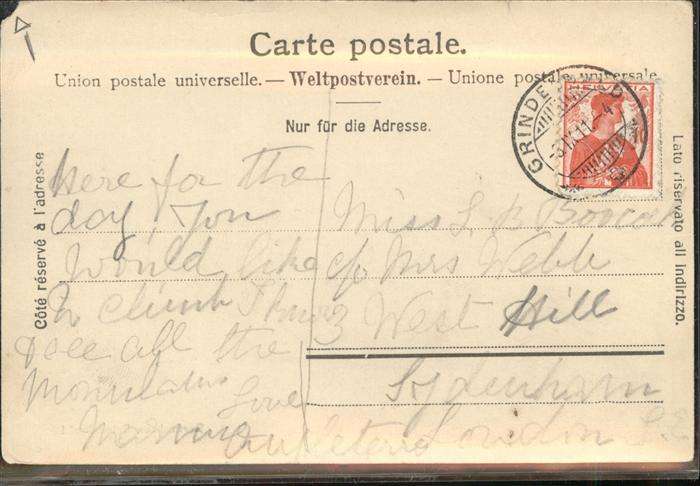 Carte postale.
Union postale universelle. — Weltpostverein. — Unione postale universale.
Nur für die Adresse.
Côté réservé à l'adresse
Lato riservato all indirizzo.
HELVETIA
GRINDELWALD
Here for the
day, You
Would like
to climb
& see all the
Mountains
Love
Miss L B
c/o Mrs Webb
3 West Hill
Sydenham
London S.E
England